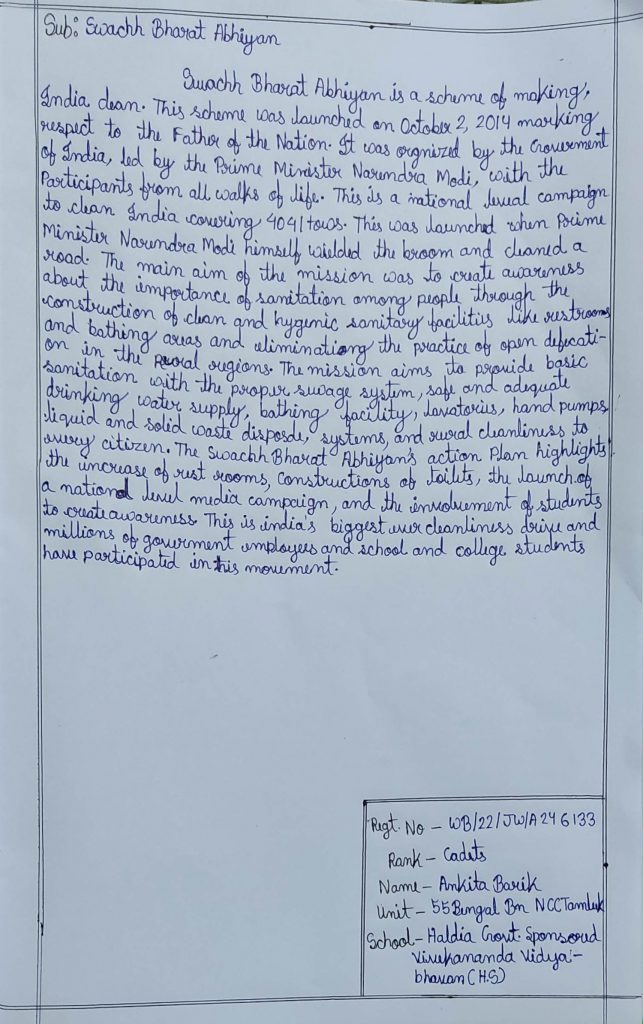 Sub: Swachh Bharat Abhiyan
Swachh Bharat Abhiyan is a scheme of making,
India clean. This scheme was launched on October 2, 2014 marking
respect to the Father of the Nation. It was orgnized by the Government
of India, led by the Prime Minister Narendra Modi, with the
Participants from all walks of life. This is a national leval campaign
to clean India covering 4041 tows. This was launched when Prime
Minister Narendra Modi himself wielded the broom and cleaned a
road. The main aim of the mission was to create awareness
about the importance of sanitation among people through the
construction of clean and hygenic sanitary facilities like restrooms
and bathing areas and eliminationg the practice of open defecati-
on in the rural regions. The mission aims to provide basic
sanitation with the proper sewage system, safe and adequate
drinking water supply, bathing facility, lavatories, hand pumps
liquid and solid waste disposde, systems, and rural cleanliness to
every citizen. The Swachh Bharat Abhiyan's action Plan highlights
the increase of rest rooms, constructions of toilets, the launch of
a national level media campaign, and the involvement of students
to create awareness. This is india's biggest ever cleanliness drive and
millions of goverment employees and school and college students
have participated in this movement.
Regt. No - WB/22/JW/A246133
Rank - Cadets
Name - Ankita Barik
Unit - 55 Bengal Bn NCC Tamluk
School - Haldia Govt. Sponsored
Vivekananda Vidya-
bhavan (H.S)